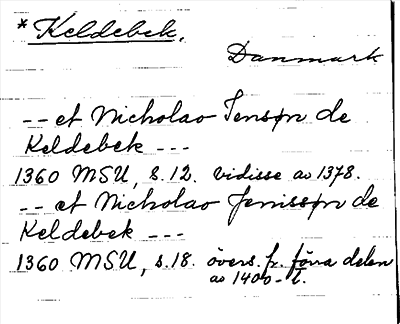 * Keldebek.
Danmark
-- et Nicholao Jensøn de
Keldebek ---
1360 MSU, s.12. vidisse av 1378.
-- et Nicholao Jenissøn de
Keldebek ---
1360 MSU, s.18. övers. fr. förra delen
av 1400-t.